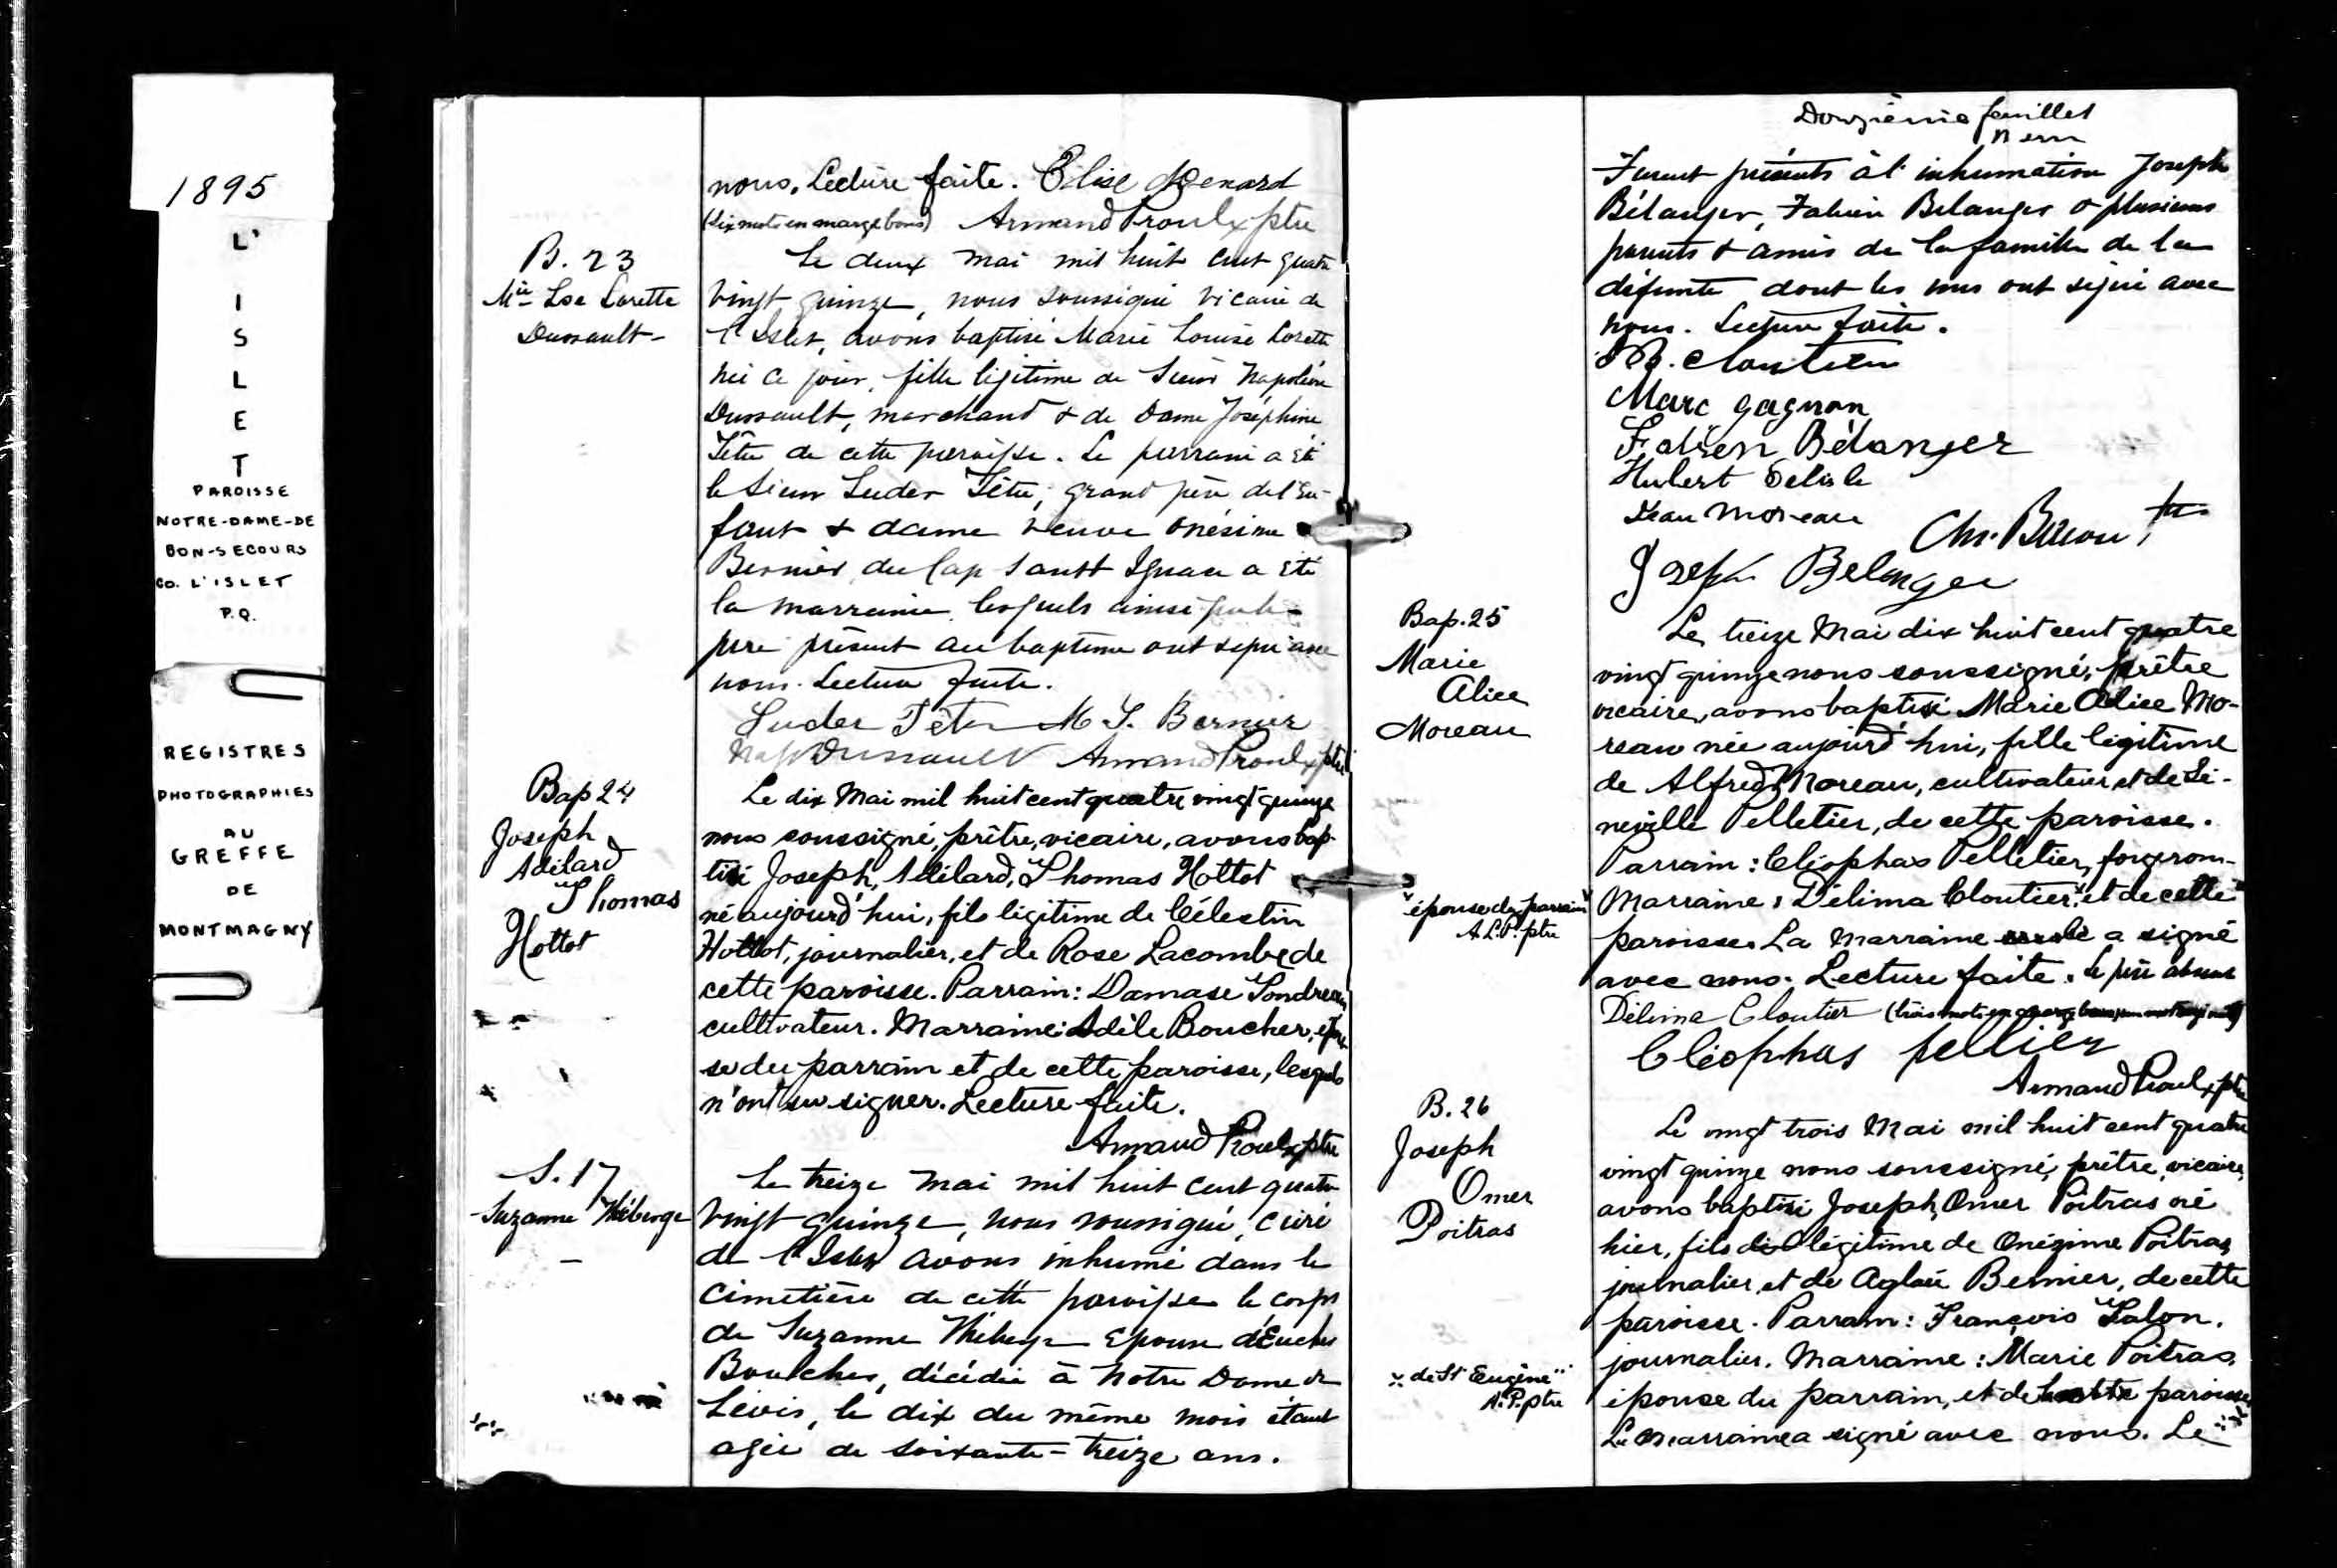 1895
L'
I
S
L
E
T
PAROISSE
NOTRE-DAME-DE
BON-SECOURS
CO. L'ISLET
P.Q.
REGISTRES
PHOTOGRAPHIES
AU
GREFFE
DE
MONTMAGNY
nous. Lecture faite. Elise
(six mots en marge bons) Armand Proulx ptre
B. 23
Mie Lse Lorette
Dussault
Le deux mai mil huit cent quatre
vingt quinze, nous soussigné vicaire de
l'Islet, avons baptisé Marie Louise Lorette
née ce jour, fille légitime de Sieur Napoléon
Dussault, marchand & de Dame Joséphine
Têtu de cette paroisse. Le parrain a été
le Sieur Luder Têtu, grand père de l'en-
fant & dame veuve Onésime
Bernier du Cap Saint Ignace a été
la marraine, lesquels ainsi que le
père présent au baptême ont signé avec
nous. Lecture faite.
Luder Têtu M. Bernier
Nap Dussault Armand Proulx ptre
Bap 24
Joseph
Adélard
Thomas
Hottot
Le dix Mai mil huit cent quatre vingt quinze
nous soussigné, prêtre, vicaire, avons bap-
tisé Joseph, Adélard, Thomas Hottot
né aujourd'hui, fils légitime de Célestin
Hottot, journalier, et de Rose Lacombe de
cette paroisse. Parrain: Damase Tondreau
cultivateur. Marraine: Adèle Boucher, épou-
se du parrain et de cette paroisse, lesquels
n'ont su signer. Lecture faite.
Armand Proulx ptre
S. 17
Suzanne Théberge
Le treize mai mil huit cent quatre
vingt quinze, nous soussigné, curé
de l'Islet avons inhumé dans le
cimetière de cette paroisse le corps
de Suzanne Théberge épouse d'Eucher
Boucher, décédée à Notre Dame de
Lévis, le dix du même mois étant
agée de soixante-treize ans.
Douzième feuillet
Furent présents à l'inhumation Joseph
Bélanger, Fabien Bélanger & plusieurs
parents & amis de la famille de la
défunte dont les uns ont signé avec
nous. Lecture faite.
Cloutier
Marc Gagnon
Fabien Bélanger
Hubert Delisle
Jean Moreau
Chs. Bacon Ptre
Joseph Belanger
Bap. 25
Marie
Alice
Moreau
Le treize Mai dix huit cent quatre
vingt quinze nous soussigné, prêtre
vicaire, avons baptisé Marie Alice Mo-
reau née aujourd'hui, fille légitime
de Alfred Moreau, cultivateur, et de Zé-
neville Pelletier, de cette paroisse.
Parrain: Cléophas Pelletier, forgeron-
Marraine: Délima Cloutier et de cette
épouse du parrain
A.L.P. ptre
paroisse. La marraine a signé
avec nous. Lecture faite. Le père absent
Délima Cloutier (trois mots en marge bons,
Cléophas pelletier
Armand Proulx ptre
B. 26
Joseph
Omer
Poitras
Le vingt trois Mai mil huit cent quatre
vingt quinze nous soussigné, prêtre, vicaire,
avons baptisé Joseph, Omer Poitras né
hier, fils légitime de Onésime Poitras
journalier, et de Aglaé Bernier, de cette
paroisse. Parrain: François Talon.
journalier. Marraine: Marie Poitras,
"de St Eugène"
A. P. ptre
épouse du parrain, et de paroisse
La marraine a signé avec nous. Le